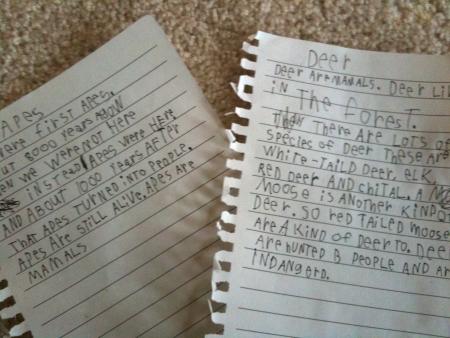 APES
were first APES.
out 8000 years AGOW
en we were NOT Here
insread APES were Here
AND ABOUT 1000 years AFTER
THAT APES TURNED INTO PEOPLE.
APES Are STILL ALIVE. APES Are
MAMALS
Deer
Deer Are MAMALS. Deer Li
in THE FOREST.
THere ARE LOTS of
species of Deer THese Are
WHITE-TAILD Deer, eLK
RED Deer AND CHITAL. A
MOOSE is ANOTHER KIND O
Deer. SO reD TAILED MOOSE
Are A KIND OF Deer TO. Dee
Are HUNTED B PEOPLE AND Ar
INDANGerD.